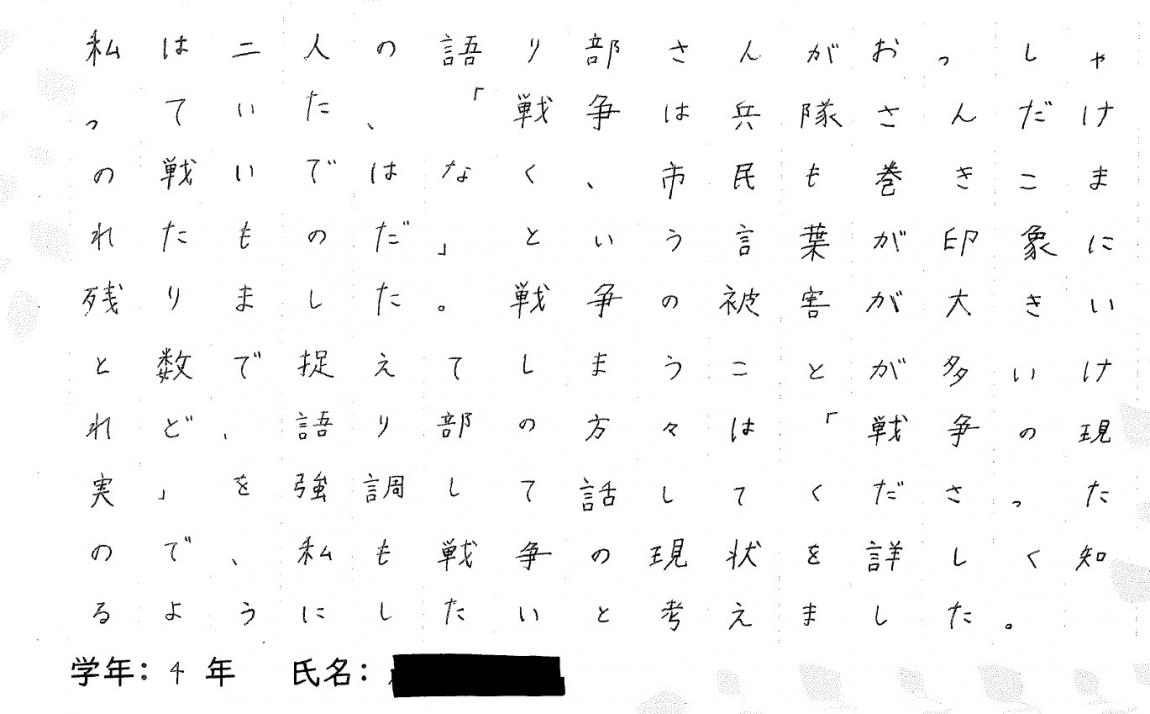 私は二人の語り部さんがおっしゃ
っていた、「戦争は兵隊さんだけ
の戦いではなく、市民も巻きこま
れたものだ」という言葉が印象に
残りました。戦争の被害が大きい
と数で捉えてしまうことが多いけ
れど、語り部の方々は「戦争の現
実」を強調して話してくださった
ので、私も戦争の現状を詳しく知
るようにしたいと考えました。
学年：4年　氏名：